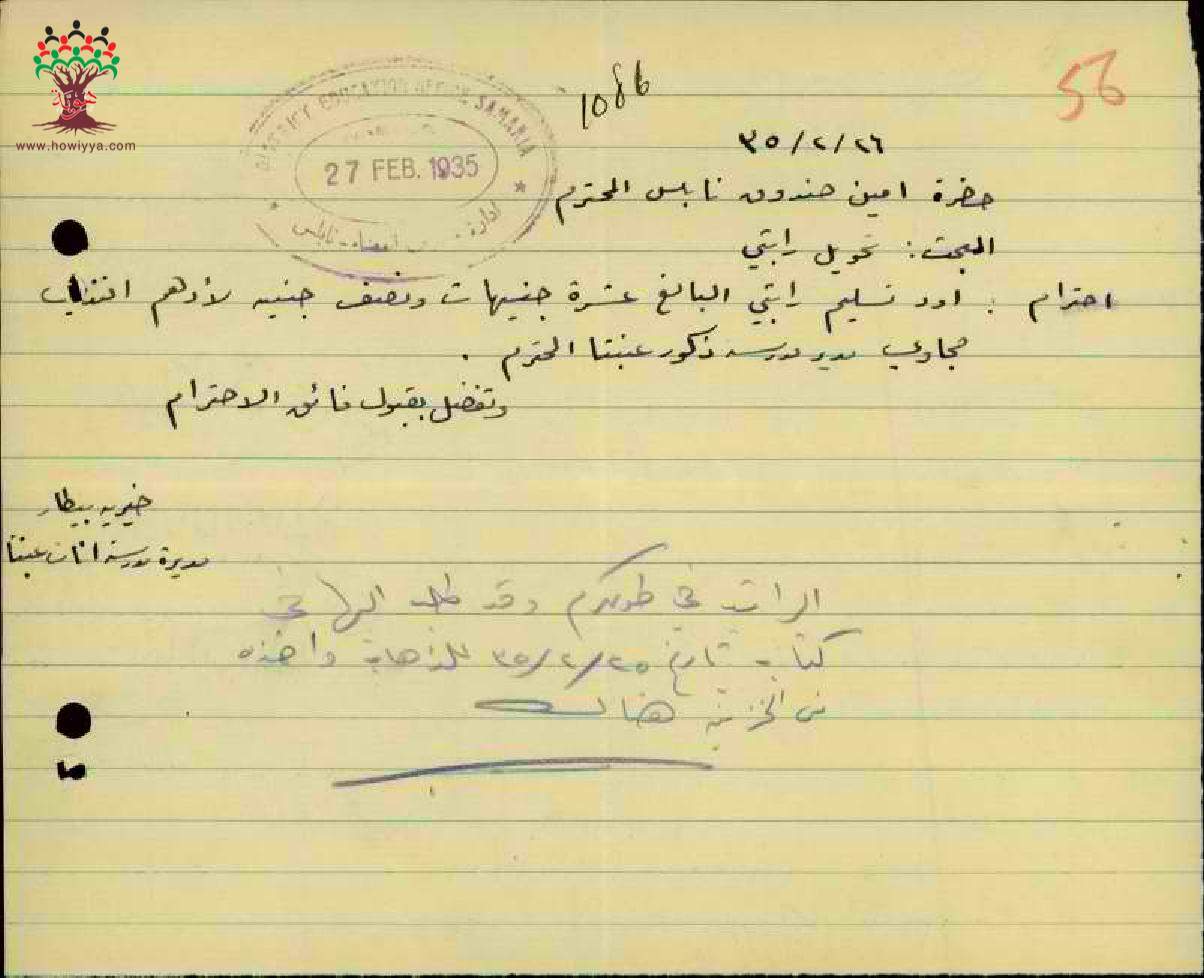 هوية
www.howiyya.com
56
1086
DISTRICT EDUCATION OFFICE SAMARIA
27 FEB. 1935
ادارة نابلس
٣٥/٢/٢٦
حضرة امين صندوق نابلس المحترم
المبحث: تحويل راتبي
احترام : اود تسليم راتبي البالغ عشرة جنيهات ونصف جنيه لأدهم افندي
مدير مدرسة ذكور عنبتا المحترم .
وتفضل بقبول فائق الاحترام
خيريه بيطار
مديرة مدرسة اناث عنبتا
الراتب في طولكرم وقد طلب اليها في
كتاب تاريخ ٣٥/٢/٢٥ للذهاب واخذه
من الخزينة هناك